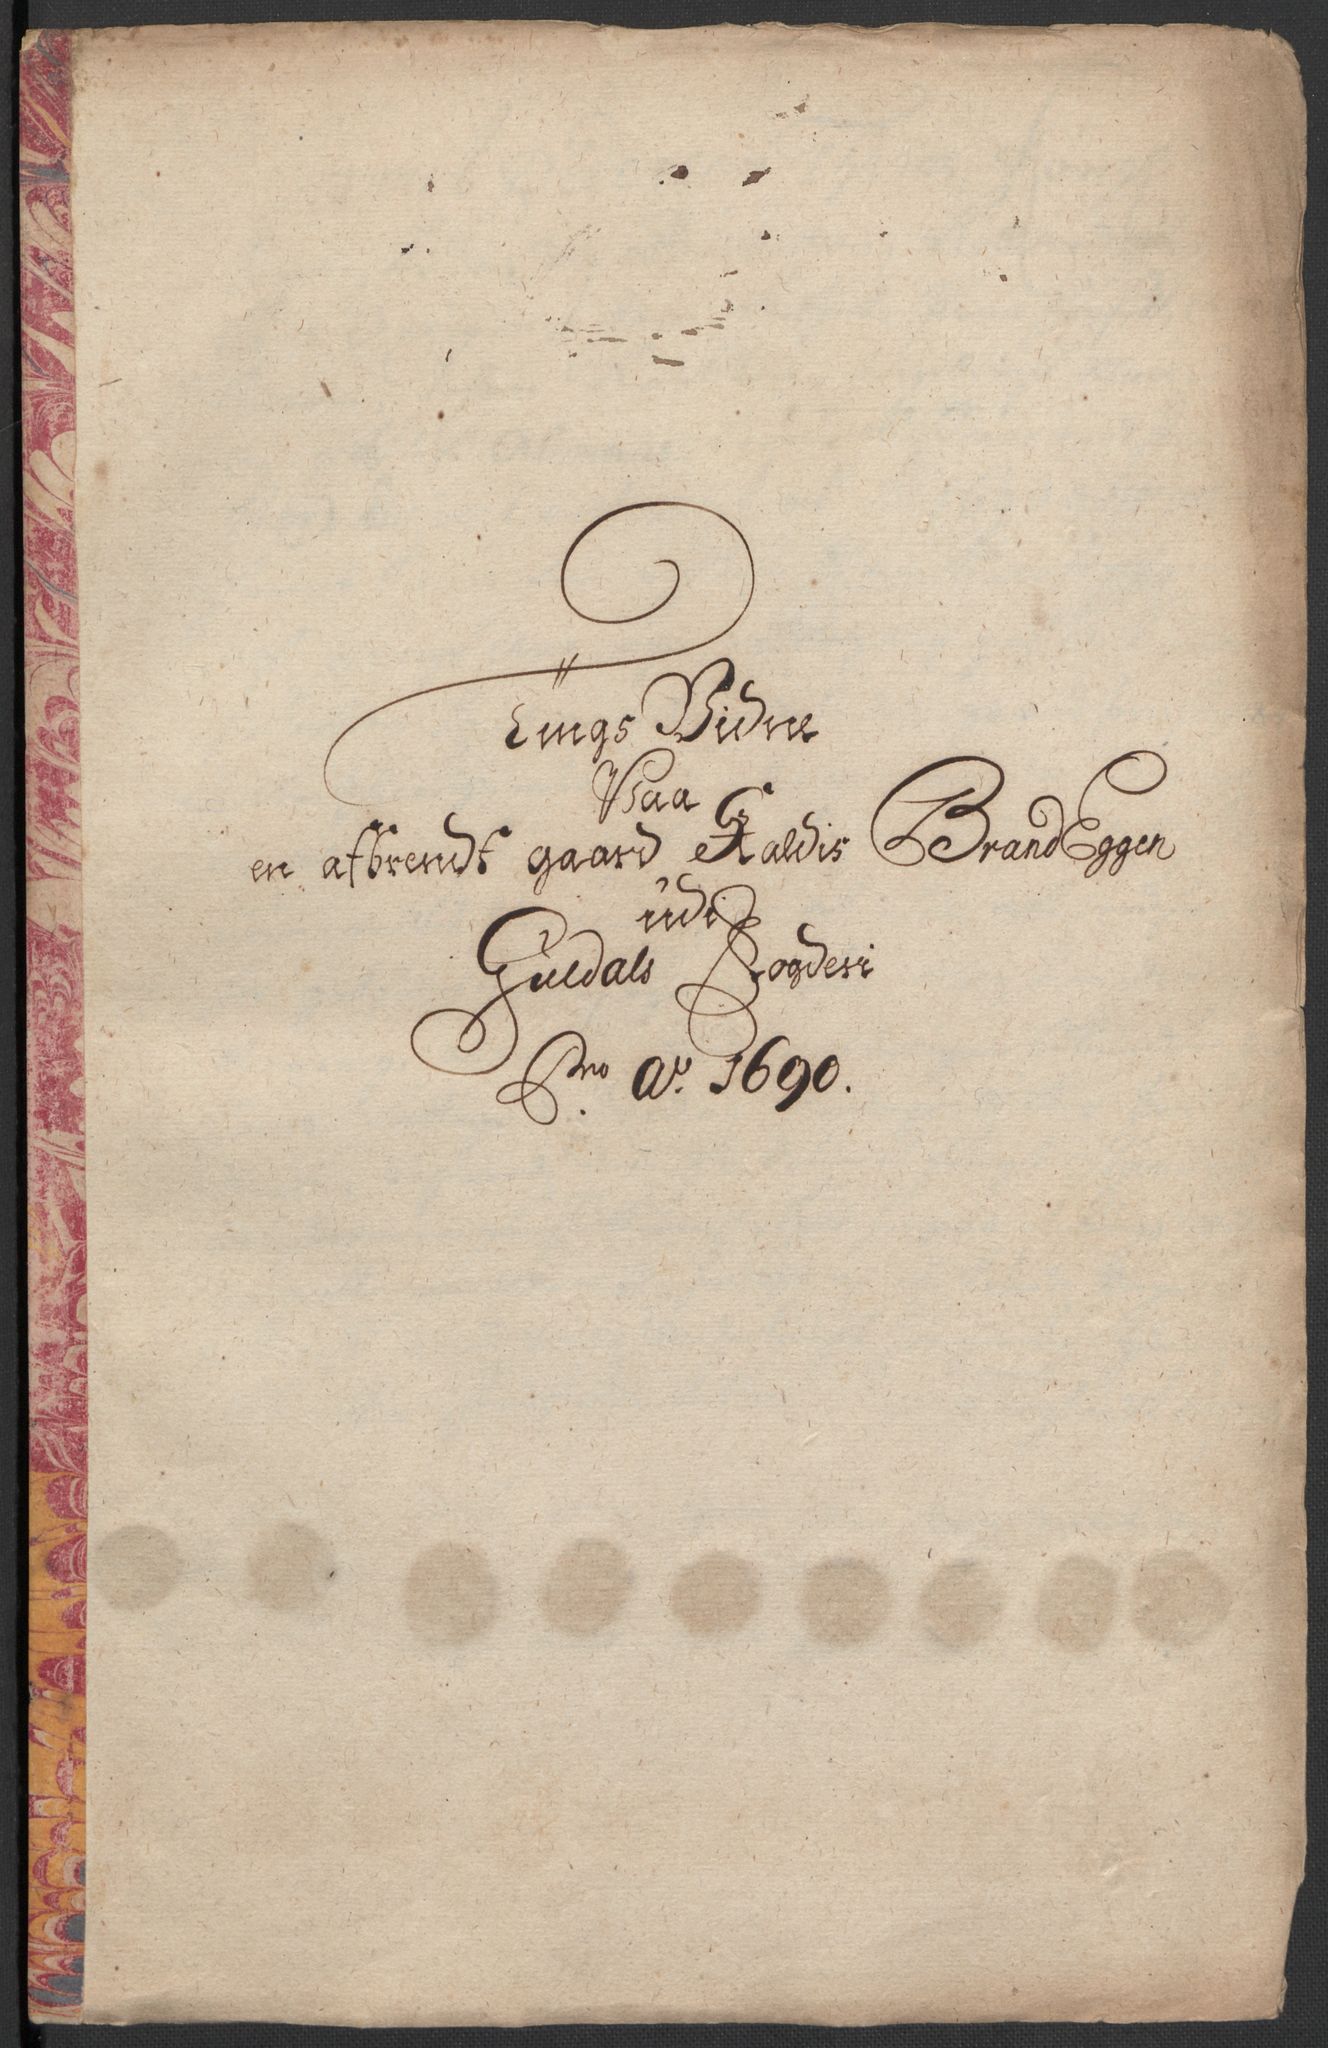 Tings Vidne
Paa
en afbrendt gaard Kaldis BrandEggen
udi
Guldals Fogderi
Pro Ao. 1690.